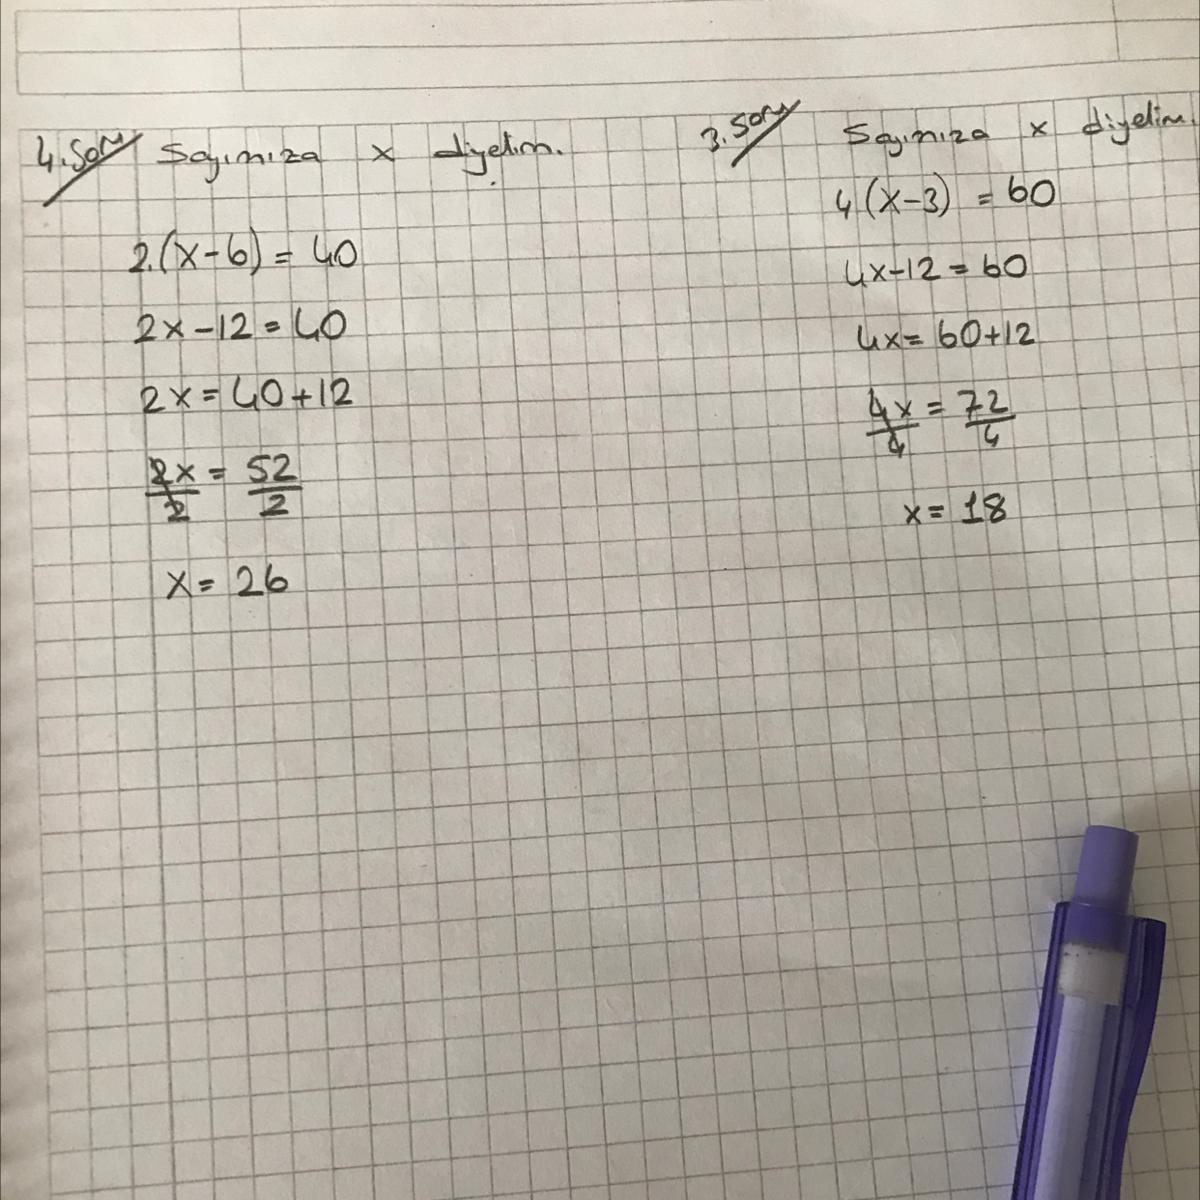 4. Soru Sayımıza x diyelim.
2.(x-6) = 40
2x-12=40
2x=40+12
2x/2 = 52/2
x= 26
3. Soru Sayımıza x diyelim.
4(x-3) = 60
4x-12=60
4x= 60+12
4x/4 = 72/4
x= 18